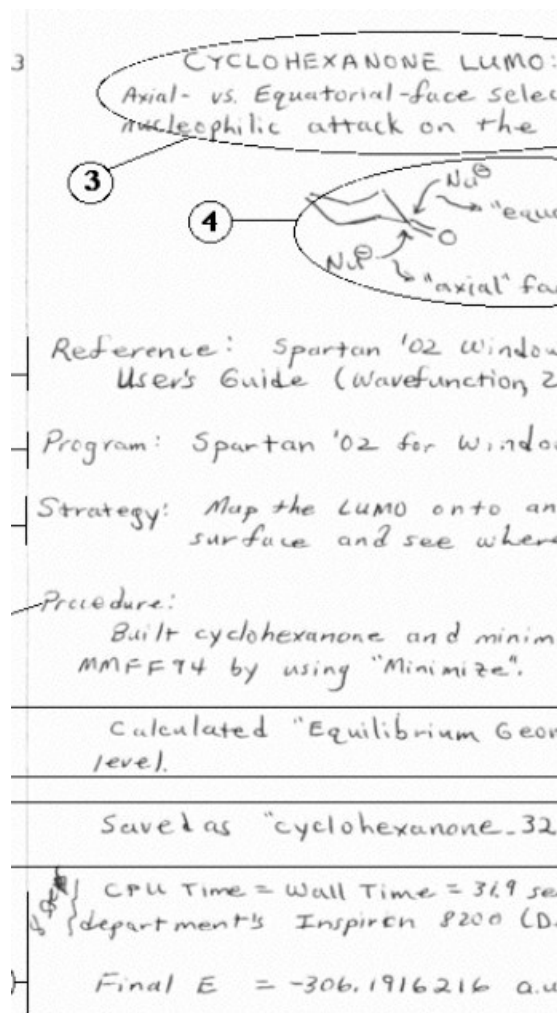 3
CYCLOHEXANONE LUMO:
Axial- vs. Equatorial-face selec
nucleophilic attack on the
3
4
Nu⊖
"equa
O
Nu⊖
"axial" fa
Reference: Spartan '02 Window
User's Guide (Wavefunction, 2
Program: Spartan '02 for Windo
Strategy: Map the LUMO onto an
surface and see where
Procedure:
Built cyclohexanone and minim
MMFF94 by using "Minimize".
Calculated "Equilibrium Geom
level.
Saved as "cyclohexanone_32
CPU Time = Wall Time = 31.9 se
department's Inspiron 8200 (D.
Final E = -306.1916216 a.u